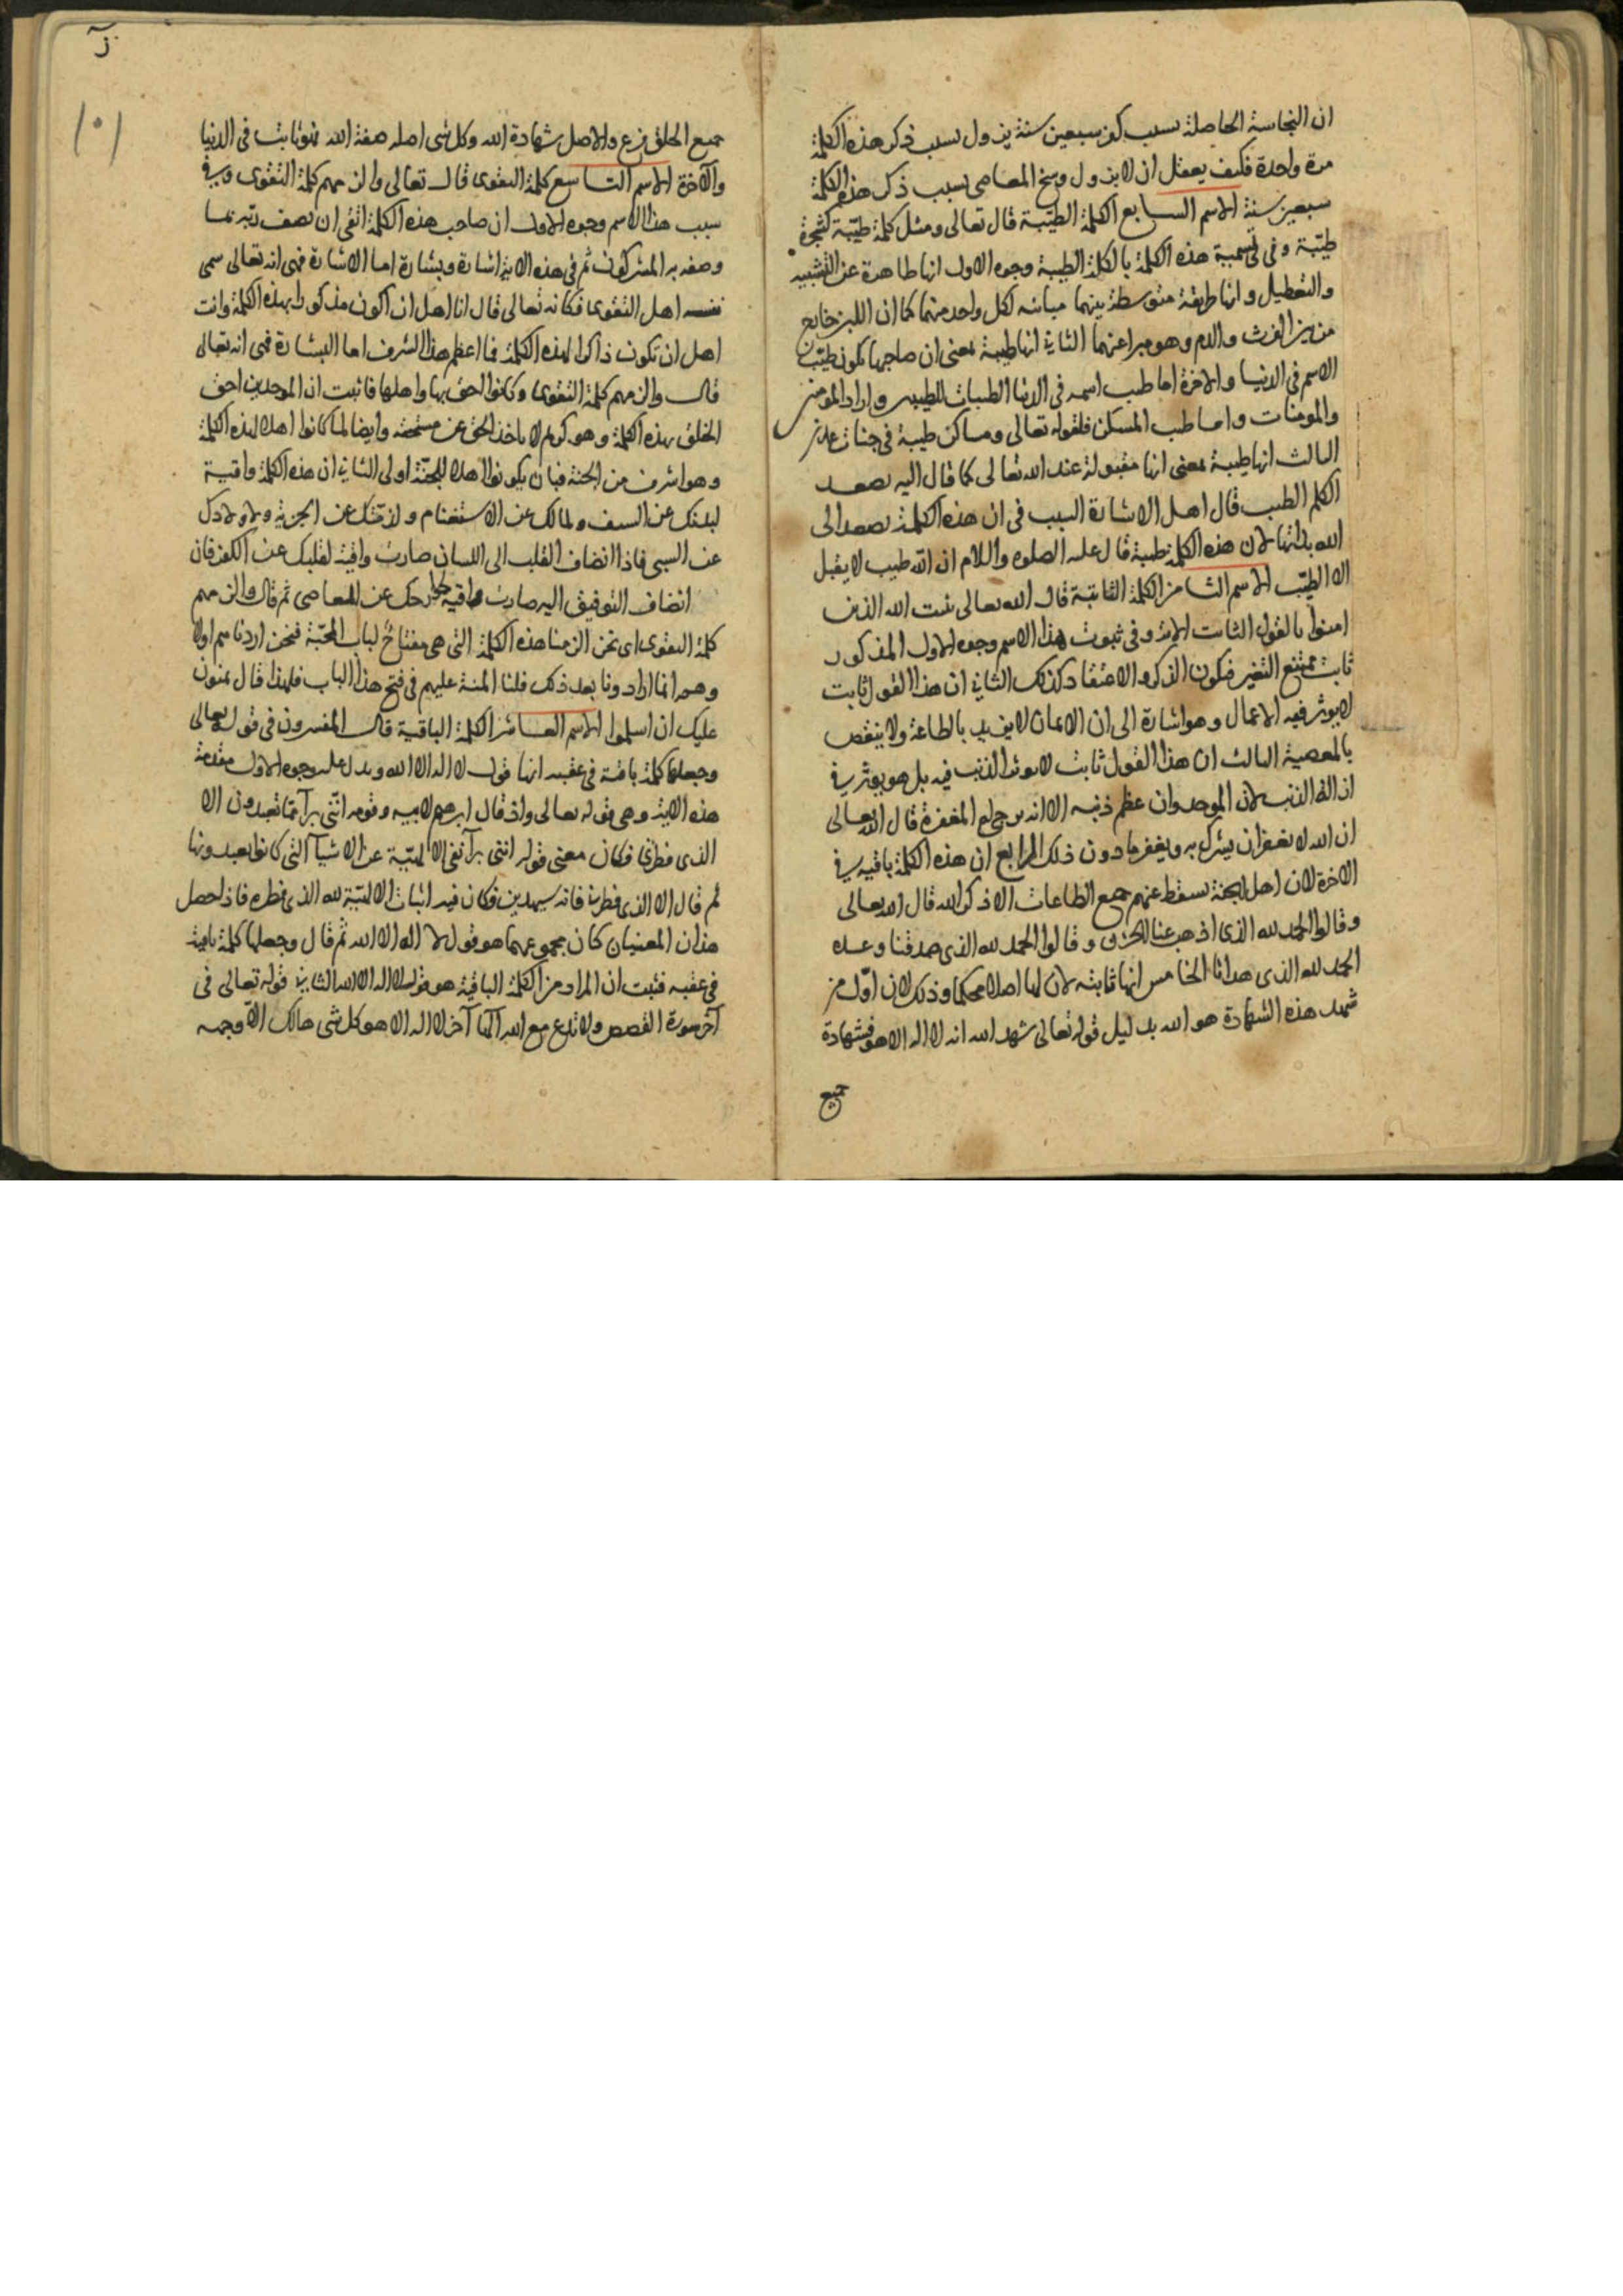 ان النجاسة الحاصلة بسبب كفر سبعين سنة يزول بسبب ذكر هذه الكلمة
مرة واحدة فكيف يعقل ان لا يزول وسخ المعاصي بسبب ذكر هذه الكلمة
سبعين سنة الاسم السابع الكلمة الطيبة قال تعالى ومثل كلمة طيبة كشجرة
طيبة وفي تسمية هذه الكلمة بالكلمة الطيبة وجوه الاول انها طاهرة عن التشبيه
والتعطيل وانها طريقة متوسطة بينهما مباينه لكل واحد منهما كما ان اللبن خارج
من بين الفرث والدم وهو مبرا عنهما الثاني انها طيبة بمعنى ان صاحبها يكون طيب
الاسم في الدنيا والاخرة اما طيب اسمه في الدنيا الطيبات للطيبين واراد المومنين
والمومنات واما طيب المسكن فلقوله تعالى ومساكن طيبة في جنات عدن
الثالث انها طيبة بمعنى انها مقبولة عند الله تعالى كما قال اليه يصعد
الكلم الطيب قال اهل الاشارة السبب في ان هذه الكلمة تصعد الى
الله بذاتها لان هذه الكلمة طيبة قال عليه الصلوه والسلام ان الله طيب لا يقبل
الا الطيب الاسم الثامن الكلمة الثابتة قال الله تعالى يثبت الله الذين
امنوا بالقول الثابت الاية وفي ثبوت هذا الاسم وجوه الاول المذكور
ثابت ممتنع التغير فيكون الذكر والاعتقاد كذلك الثاني ان هذا القول ثابت
لا يوثر فيه الاعمال وهو اشارة الى ان الايمان لا يزيد بالطاعة ولا ينقص
بالمعصية الثالث ان هذا القول ثابت لا يوثر الذنب فيه بل هو يوثر في
ازالة الذنب لان الموحد وان عظم ذنبه الا انه يرجى له المغفرة قال الله تعالى
ان الله لا يغفر ان يشرك به ويغفر ما دون ذلك الرابع ان هذه الكلمة باقيه في
الاخرة لان اهل الجنة يسقط عنهم جميع الطاعات الا ذكر الله قال الله تعالى
وقالوا الحمد لله الذي اذهب عنا الحزن وقالوا الحمد لله الذي صدقنا وعده
الحمد لله الذي هدانا الخامس انها ثابته لان لها اصلا محكما وذلك لان اول من
شهد هذه الشهادة هو الله بدليل قوله تعالى شهد الله انه لا اله الا هو فشهادة
جميع
١٠١
جميع الخلق فرع والاصل شهادة الله وكل شي اصله صفة الله فهو ثابت في الدنيا
والاخرة الاسم التاسع كلمة التقوى قال تعالى والزمهم كلمة التقوى وفي
سبب هذا الاسم وجوه الاول ان صاحب هذه الكلمة اتقى ان يصف ربه بما
وصفه به المشركون ثم في هذه الاية اشارة وبشارة اما الاشارة فهي انه تعالى سمى
نفسه اهل التقوى فكانه تعالى قال انا اهل ان اكون مذكورا بهذه الكلمة وانت
اهل ان تكون ذاكرا لهذه الكلمة فما اعظم هذا الشرف اما البشارة فهي انه تعالى
قال والزمهم كلمة التقوى وكانوا احق بها واهلها فاثبت ان الموحدين احق
الخلق بهذه الكلمة وهو كريم لا ياخذ الحق عن مستحقه وايضا لما كانوا اهلا لهذه الكلمة
وهو اشرف من الجنة فبان يكونوا اهلا للجنة اولى الثاني ان هذه الكلمة واقية
لبدنك عن السيف ولمالك عن الاستغنام ولذمتك عن الجزية ولاولادك
عن السبي فاذا انضاف القلب الى اللسان صارت واقية لقلبك عن الكفر فان
انضاف التوفيق اليه صارت واقية لجوارحك عن المعاصي ثم قال والزمهم
كلمة التقوى اي نحن الزمنا هذه الكلمة التي هي مفتاح لباب المحبة فنحن اردناهم اولا
وهم انما ارادونا بعد ذلك فلنا المنة عليهم في فتح هذا الباب فلهذا قال يمنون
عليك ان اسلموا الاسم العاشر الكلمة الباقية قال المفسرون في قوله تعالى
وجعلها كلمة باقية في عقبه انها قول لا اله الا الله ويدل عليه وجوه الاول مقدمة
هذه الاية وهي قوله تعالى واذ قال ابرهيم لابيه وقومه انني برآ مما تعبدون الا
الذي فطرني فكان معنى قوله انني برآ نفي الالهية عن الاشيآ التي كانوا يعبدونها
ثم قال الا الذي فطرني فانه سيهدين فكان فيه اثبات الالهية لله الذي فطره فاذا حصل
هذان المعنيان كان مجموعهما هو قول لا اله الا الله ثم قال وجعلها كلمة باقية
في عقبه فثبت ان المراد من الكلمة الباقية هو قول لا اله الا الله الثاني قوله تعالى في
آخر سورة القصص ولا تدع مع الله الها آخر لا اله الا هو كل شي هالك الا وجهه